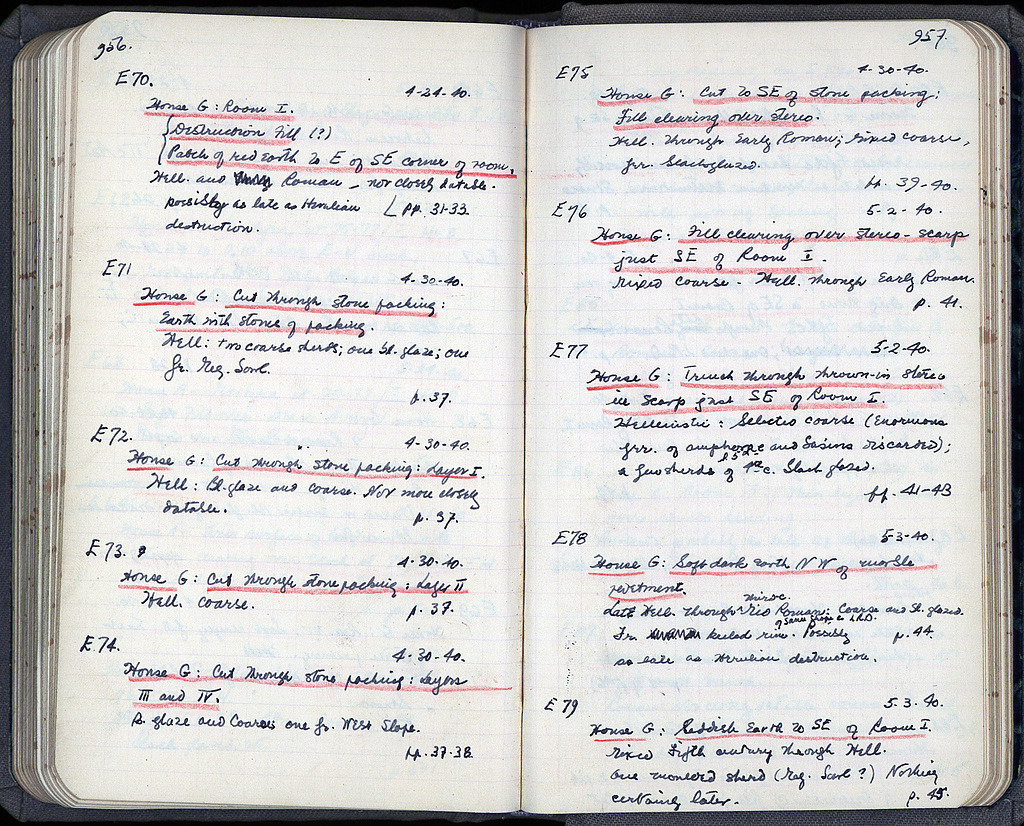 956.
E70.
4-24-40.
House G: Room I.
Destruction Fill (?)
Patch of red earth to E of SE corner of room.
Hell. and Roman – not closely datable.
possibly as late as Herulian
pp. 31-33.
destruction.
E71
4-30-40.
House G: Cut through stone packing:
Earth with stones of packing.
Hell: two coarse sherds; one bl. glaze; one
fr. Meg. bowl.
p. 37.
E72.
4-30-40.
House G: Cut through stone packing: Layer I.
Hell: Bl. glaze and coarse. Not more closely
datable.
p. 37.
E73.
4-30-40.
House G: Cut through stone packing: Layer II
Hell. coarse.
p. 37.
E74.
4-30-40.
House G: Cut through stone packing: Layers
III and IV.
B. glaze and coarse; one fr. West Slope.
pp. 37-38.
957.
E75
4-30-40.
House G: Cut to SE of stone packing:
Fill clearing over stereo.
Hell. through Early Roman; mixed coarse,
fr. black glazed.
pp. 39-40.
E76
5-2-40.
House G: Fill clearing over stereo-scarp
just SE of Room I.
mixed coarse. Hell. through Early Roman.
p. 41.
E77
5-2-40.
House G: Trench through thrown-in stereo
in scarp just SE of Room I.
Hellenistic: Selected coarse (Enormous
frr. of amphorae and basins discarded);
a few sherds of c. black glazed.
pp. 41-43
E78
5-3-40.
House G: Soft dark earth NW of marble
revetment.
misc.
Late Hell. through Mid Roman: coarse and bl. glazed.
of same shape as L.R.D.
Fr. keeled rim. Possibly
p. 44.
as late as Herulian destruction.
E79
5-3-40.
House G: Reddish Earth to SE of Room I.
mixed Fifth century through Hell.
one moulded sherd (Meg. bowl?) Nothing
certainly later.
p. 45.